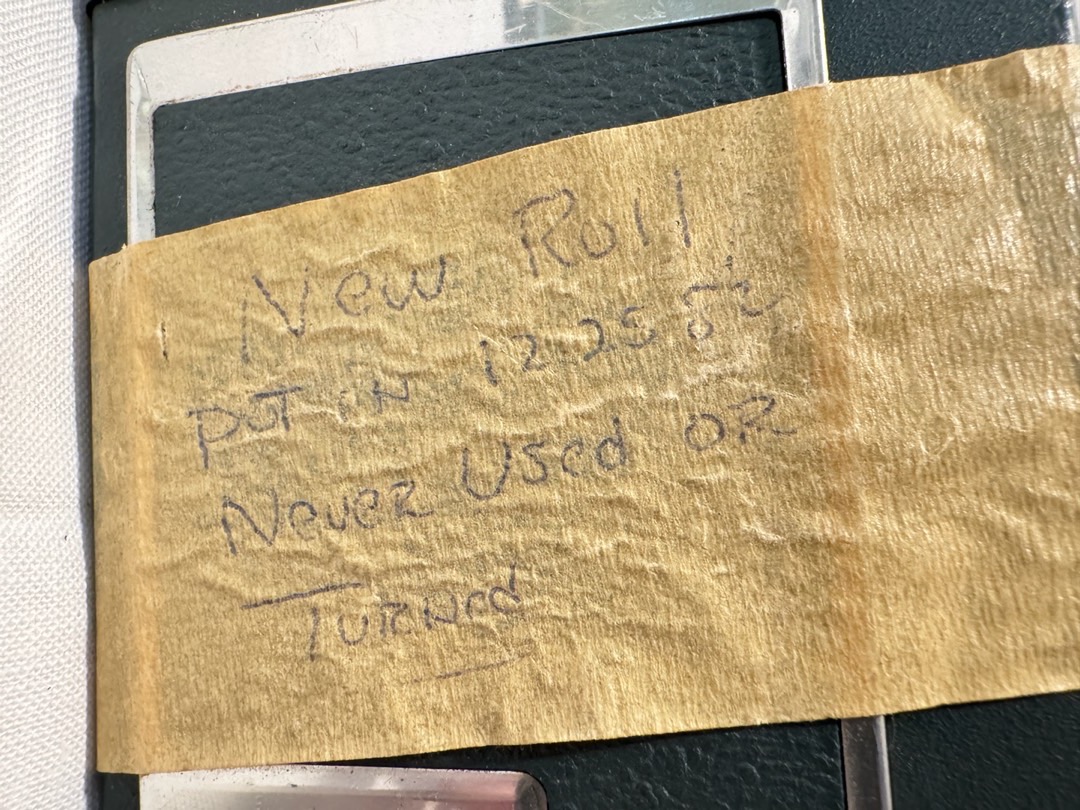 New Roll
PUT IN 12 25 82
Never Used OR
Turned